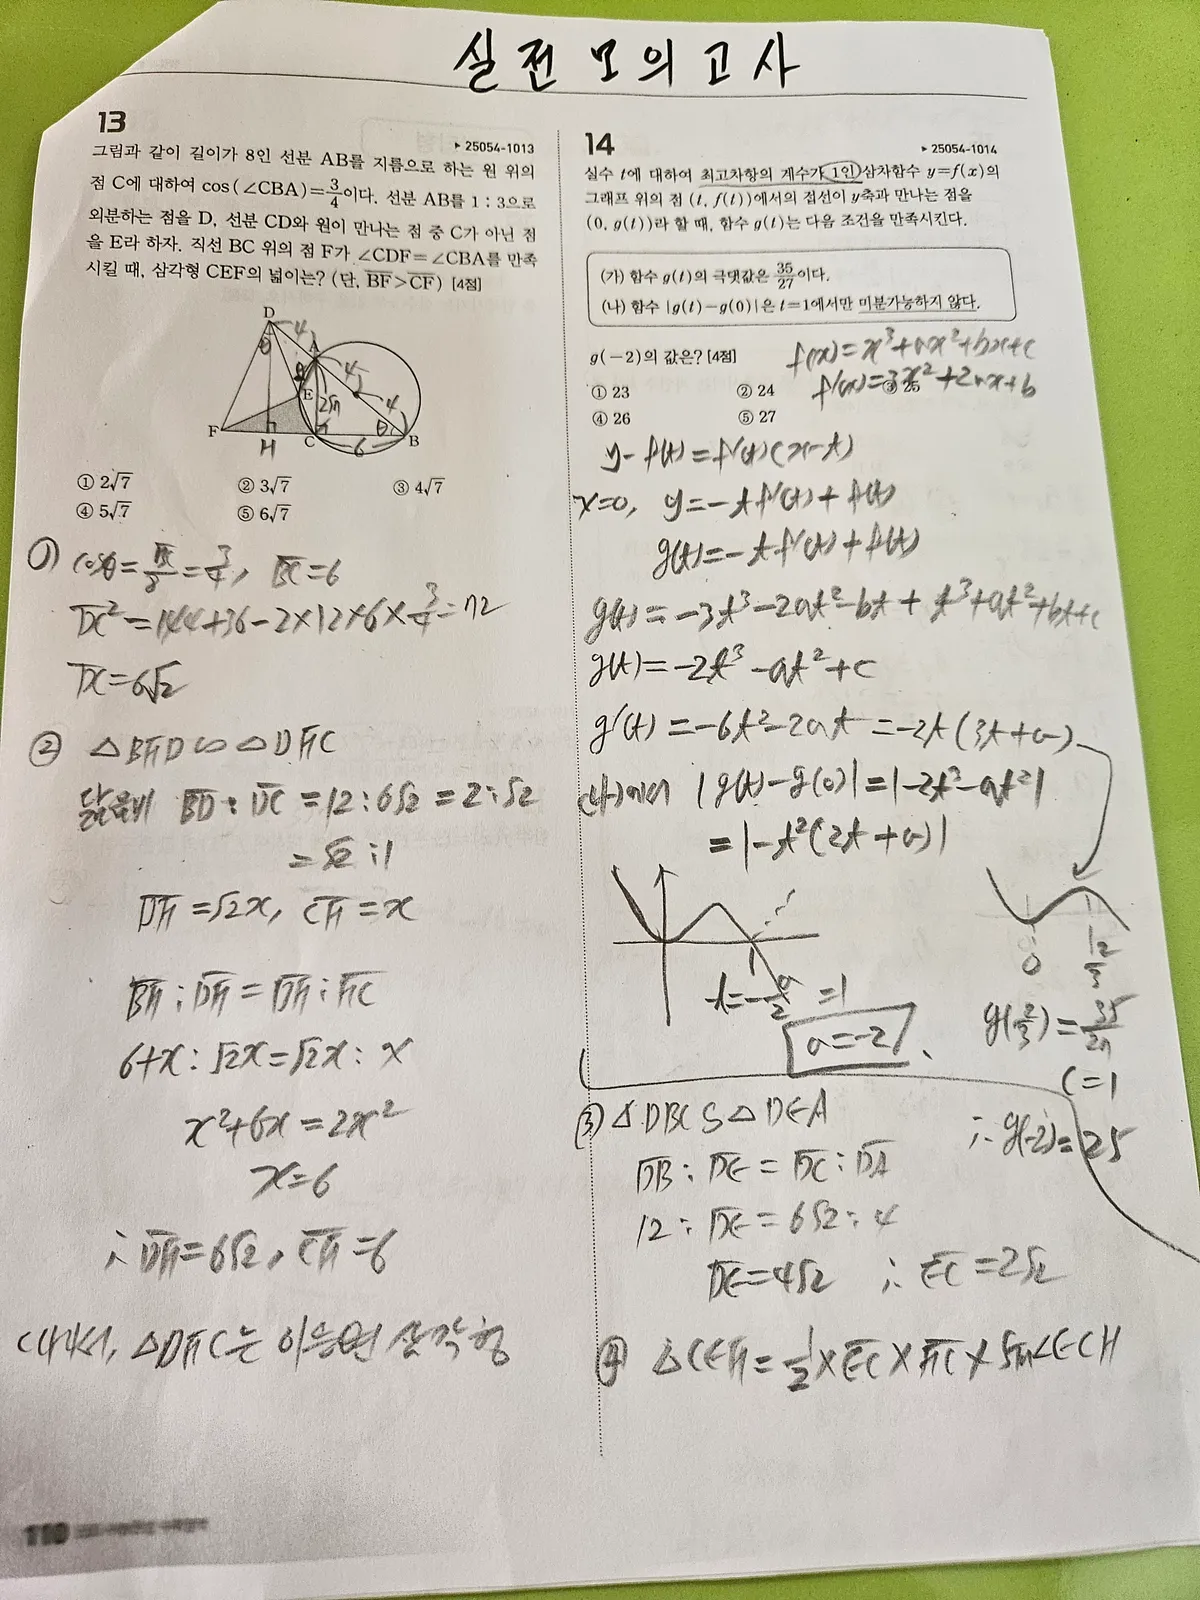 실전 모의고사
13
▶ 25054-1013
그림과 같이 길이가 8인 선분 AB를 지름으로 하는 원 위의
점 C에 대하여 cos(∠CBA)=3/4이다. 선분 AB를 1 : 3으로
외분하는 점을 D, 선분 CD와 원이 만나는 점 중 C가 아닌 점
을 E라 하자. 직선 BC 위의 점 F가 ∠CDF=∠CBA를 만족
시킬 때, 삼각형 CEF의 넓이는? (단, B̅F̅>C̅F̅) [4점]
D
4
θ
A
4
E
2√7
4
F
H
C
6
θ
B
① 2√7
② 3√7
③ 4√7
④ 5√7
⑤ 6√7
① cosθ=B̅C̅/8=3/4, B̅C̅=6
D̅C̅²=144+36-2×12×6×3/4=72
D̅C̅=6√2
② △BFD∽△DFC
닮음비 B̅D̅:D̅C̅=12:6√2=2:√2
=√2:1
D̅F̅=√2x, C̅F̅=x
B̅F̅:D̅F̅=D̅F̅:F̅C̅
6+x:√2x=√2x:x
x²+6x=2x²
x=6
∴D̅F̅=6√2, C̅F̅=6
따라서, △DFC는 이등변 삼각형
14
▶ 25054-1014
실수 t에 대하여 최고차항의 계수가 1인 삼차함수 y=f(x)의
그래프 위의 점 (t, f(t))에서의 접선이 y축과 만나는 점을
(0, g(t))라 할 때, 함수 g(t)는 다음 조건을 만족시킨다.
(가) 함수 g(t)의 극댓값은 35/27이다.
(나) 함수 |g(t)-g(0)|은 t=1에서만 미분가능하지 않다.
g(-2)의 값은? [4점]
f(x)=x³+ax²+bx+c
f'(x)=3x²+2ax+b
① 23
② 24
③ 25
④ 26
⑤ 27
y-f(t)=f'(t)(x-t)
x=0, y=-tf'(t)+f(t)
g(t)=-tf'(t)+f(t)
g(t)=-3t³-2at²-bt+t³+at²+bt+c
g(t)=-2t³-at²+c
g'(t)=-6t²-2at=-2t(3t+a)
(나)에서 |g(t)-g(0)|=|-2t³-at²|
=|-t²(2t+a)|
t=-a/2=1
a=-2
0
2/3
g(2/3)=35/27
c=1
∴g(-2)=25
③ △DBC∽△DEA
D̅B̅:D̅E̅=D̅C̅:D̅A̅
12:D̅E̅=6√2:4
D̅E̅=4√2 ∴E̅C̅=2√2
④ △CEF=1/2×E̅C̅×F̅C̅×sin∠ECH